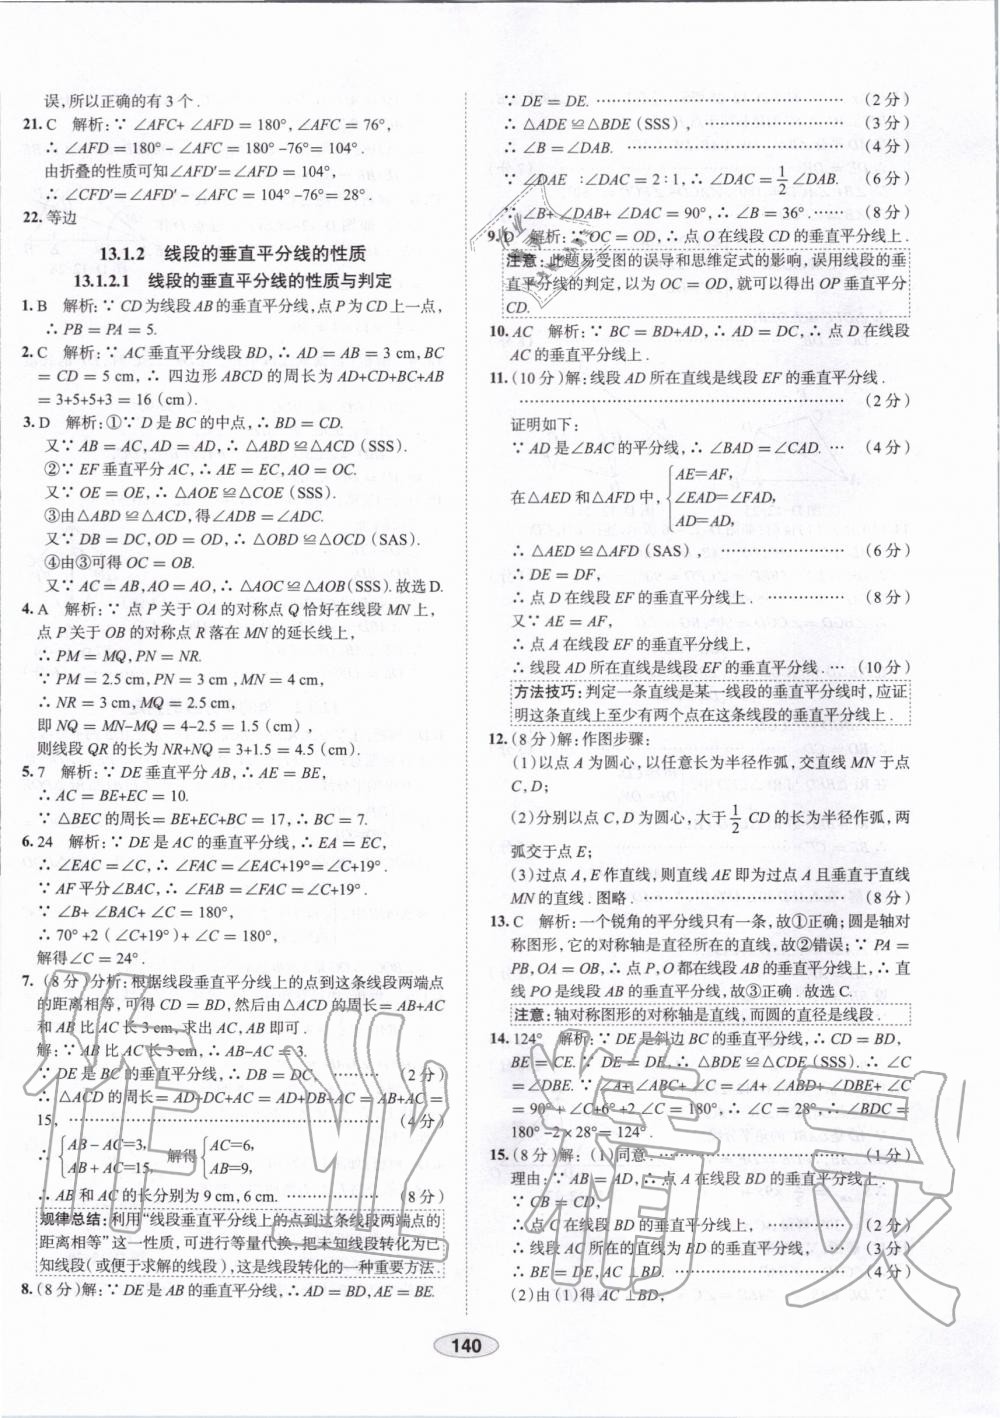 误,所以正确的有3个.
21. C 解析:∵ ∠AFC+ ∠AFD = 180°,∠AFC = 76°,
∴ ∠AFD = 180° - ∠AFC = 180° -76°= 104°.
由折叠的性质可知∠AFD′=∠AFD = 104°,
∴ ∠CFD′=∠AFD′ - ∠AFC = 104° -76°= 28°.
22. 等边
13.1.2 线段的垂直平分线的性质
13.1.2.1 线段的垂直平分线的性质与判定
1. B 解析:∵ CD为线段AB的垂直平分线,点P为CD上一点,
∴ PB = PA = 5.
2. C 解析:∵ AC垂直平分线段BD,∴ AD = AB = 3 cm,BC
= CD = 5 cm,∴ 四边形ABCD的周长为AD+CD+BC+AB
= 3+5+5+3 = 16 (cm).
3. D 解析:①∵ D是BC的中点,∴ BD = CD.
又∵ AB = AC,AD = AD,∴ △ABD ≌△ACD (SSS).
②∵ EF垂直平分AC,∴ AE = EC,AO = OC.
又∵ OE = OE,∴ △AOE ≌△COE (SSS).
③由△ABD ≌△ACD,得∠ADB = ∠ADC.
又∵ DB = DC,OD = OD,∴ △OBD ≌△OCD (SAS).
④由③可得OC = OB.
又∵ AC = AB,AO = AO,∴ △AOC ≌△AOB(SSS).故选D.
4. A 解析:∵ 点P关于OA的对称点Q恰好在线段MN上,
点P关于OB的对称点R落在MN的延长线上,
∴ PM = MQ,PN = NR.
∵ PM = 2.5 cm,PN = 3 cm ,MN = 4 cm,
∴ NR = 3 cm,MQ = 2.5 cm,
即NQ = MN-MQ = 4-2.5 = 1.5 (cm),
则线段QR的长为NR+NQ = 3+1.5 = 4.5 (cm).
5. 7 解析:∵ DE垂直平分AB,∴ AE = BE,
∴ AC = BE+EC = 10.
∵ △BEC的周长= BE+EC+BC = 17,∴ BC = 7.
6. 24 解析:∵ DE是AC的垂直平分线,∴ EA = EC,
∴ ∠EAC = ∠C,∴ ∠FAC = ∠EAC+19°=∠C+19°.
∵ AF平分∠BAC,∴ ∠FAB = ∠FAC = ∠C+19°.
∵ ∠B+ ∠BAC+ ∠C = 180°,
∴ 70° +2 (∠C+19°)+ ∠C = 180°,
解得∠C = 24°.
7. (8分)分析:根据线段垂直平分线上的点到这条线段两端点
的距离相等,可得CD = BD,然后由△ACD的周长=AB+AC
和AB比AC长3 cm,求出AC,AB即可.
解:∵ AB比AC长3 cm,∴ AB-AC = 3.
∵ DE是BC的垂直平分线,∴ DB = DC, ……… (2分)
∴ △ACD的周长= AD+DC+AC = AD+DB+AC = AB+AC =
15, ……………………………………… (4分)
∴ { AB - AC=3, AB + AC=15, 解得 { AC=6, AB=9,
∴ AB和AC的长分别为9 cm,6 cm. ………… (8分)
规律总结:利用“线段垂直平分线上的点到这条线段两端点的
距离相等”这一性质,可进行等量代换,把未知线段转化为已
知线段(或便于求解的线段),这是线段转化的一种重要方法.
8. (8分)解:∵ DE是AB的垂直平分线,∴ AD = BD,AE = BE.
∵ DE = DE. ……………………………… (2分)
∴ △ADE ≌△BDE (SSS), ………………… (3分)
∴ ∠B = ∠DAB. …………………………… (4分)
∵ ∠DAE :∠DAC = 2 : 1,∴ ∠DAC = 1/2 ∠DAB. (6分)
∵ ∠B+ ∠DAB+ ∠DAC = 90°,∴ ∠B = 36°. …… (8分)
9. D 解析:∵ OC = OD,∴ 点O在线段CD的垂直平分线上.
注意:此题易受图的误导和思维定式的影响,误用线段的垂
直平分线的判定,以为OC = OD,就可以得出OP垂直平分
CD.
10. AC 解析:∵ BC = BD+AD,∴ AD = DC,∴ 点D在线段
AC的垂直平分线上.
11. (10分)解:线段AD所在直线是线段EF的垂直平分线.
……………………………………………… (2分)
证明如下:
∵ AD是∠BAC的平分线,∴ ∠BAD = ∠CAD. … (4分)
在△AED和△AFD中, { AE=AF, ∠EAD=∠FAD, AD=AD,
∴ △AED ≌△AFD (SAS), ………………… (6分)
∴ DE = DF,
∴ 点D在线段EF的垂直平分线上. ………… (8分)
又∵ AE = AF,
∴ 点A在线段EF的垂直平分线上,
∴ 线段AD所在直线是线段EF的垂直平分线. … (10分)
方法技巧:判定一条直线是某一线段的垂直平分线时,应证
明这条直线上至少有两个点在这条线段的垂直平分线上.
12. (8分)解:作图步骤:
(1)以点A为圆心,以任意长为半径作弧,交直线MN于点
C,D;
(2)分别以点C,D为圆心,大于 1/2 CD的长为半径作弧,两
弧交于点E;
(3)过点A,E作直线,则直线AE即为过点A且垂直于直线
MN的直线.图略. ………………………… (8分)
13. C 解析:一个锐角的平分线只有一条,故①正确;圆是轴对
称图形,它的对称轴是直径所在的直线,故②错误;∵ PA =
PB,OA = OB,∴ 点P,O都在线段AB的垂直平分线上,∴ 直
线PO是线段AB的垂直平分线,故③正确.故选C.
注意:轴对称图形的对称轴是直线,而圆的直径是线段.
14. 124° 解析:∵ DE是斜边BC的垂直平分线,∴ CD = BD,
BE = CE. ∵ DE = DE,∴ △BDE ≌△CDE (SSS). ∴ ∠C
= ∠DBE. ∵ ∠A+ ∠ABC+ ∠C = ∠A+ ∠ABD+ ∠DBE+ ∠C
= 90° + ∠C+6° +2 ∠C = 180°,∴ ∠C = 28°,∴ ∠BDC =
180° -2×28°= 124°.
15. (8分)解:(1)同意. ……………………… (1分)
理由:∵ AB = AD,∴ 点A在线段BD的垂直平分线上.
∵ CB = CD,
∴ 点C在线段BD的垂直平分线上, ……… (2分)
∴ 线段AC所在的直线为BD的垂直平分线, … (3分)
∴ BE = DE,AC ⊥BD. …………………… (4分)
(2)由(1)得AC ⊥BD,
140
作业精灵